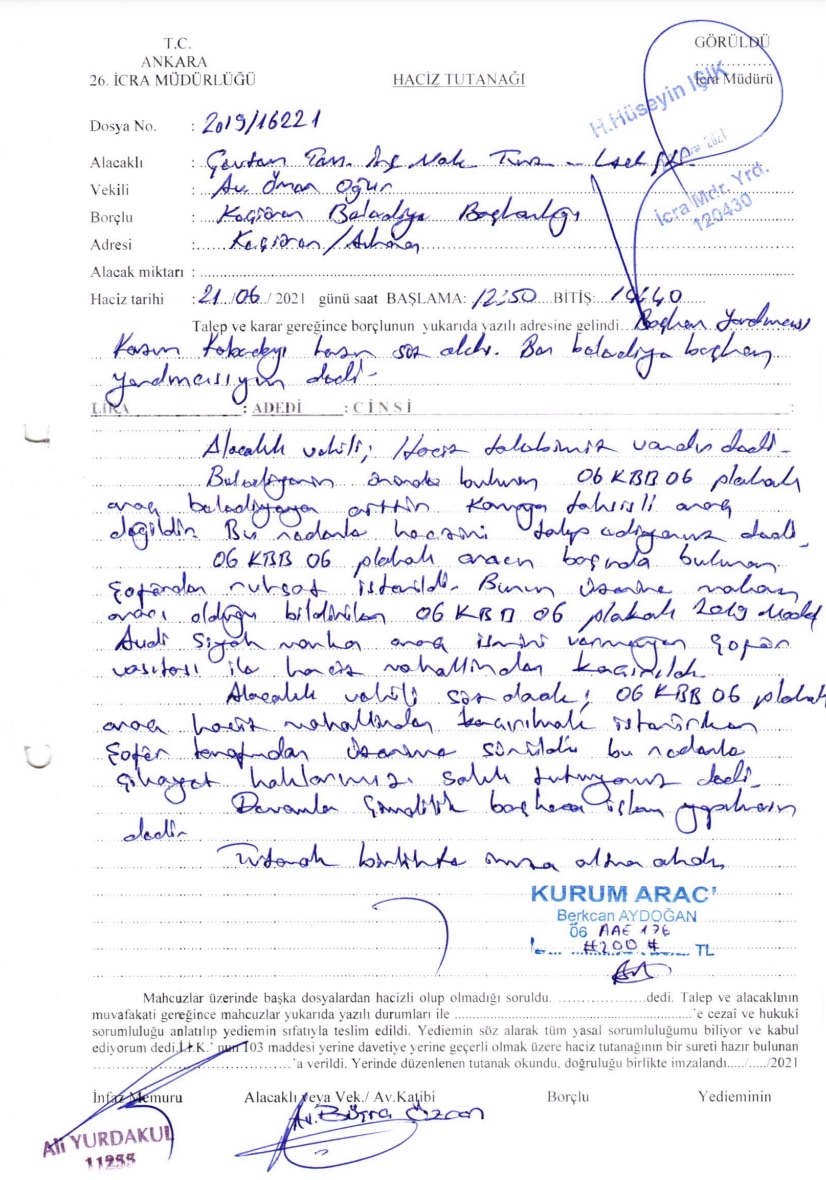 T.C.
ANKARA
26. İCRA MÜDÜRLÜĞÜ
HACİZ TUTANAĞI
GÖRÜLDÜ
İcra Müdürü
H.Hüseyin IŞIK
İcra Mdr. Yrd.
120430
Dosya No. : 2019/16221
Alacaklı : Tas. İnş Mak
Vekili : Av. Oğur
Borçlu : Keçiören Belediye Başkanlığı
Adresi : Keçiören / Ankara
Alacak miktarı :
Haciz tarihi : 21/06/2021 günü saat BAŞLAMA: 12:50 BİTİŞ: :40
Talep ve karar gereğince borçlunun yukarıda yazılı adresine gelindi. Başkan Yardımcısı
Kasım söz aldı. Ben belediye başkan
yardımcısıyım dedi.
LİRA : ADEDİ : CİNSİ :
Alacaklı vekili; Haciz talebimiz vardır dedi.
Belediyenin önünde bulunan 06 KBB 06 plakalı
araç belediyeye aittir. Kamuya tahsisli araç
değildir. Bu nedenle haczini talep ediyoruz dedi.
06 KBB 06 plakalı aracın başında bulunan
şoförden ruhsat istenildi. Bunun üzerine makam
aracı olduğu bildirilen 06 KBB 06 plakalı 2019 Model
Audi Siyah marka araç ismini vermeyen şoför
vasıtası ile haciz mahallinden kaçırıldı.
Alacaklı vekili söz aldı; 06 KBB 06 plakalı
araç haciz mahallinden kaçırılmak istenirken
şoför tarafından üzerime sürüldü bu nedenle
şikayet haklarımızı saklı tutuyoruz dedi.
Devamla şimdilik başkaca işlem yapılmasın
dedi.
Tutanak birlikte imza altına alındı.
KURUM ARAC'
Berkcan AYDOĞAN
06 AAE 176
#200 # TL
Mahcuzlar üzerinde başka dosyalardan hacizli olup olmadığı soruldu. dedi. Talep ve alacaklının
muvafakati gereğince mahcuzlar yukarıda yazılı durumları ile 'e cezaî ve hukukî
sorumluluğu anlatılıp yediemin sıfatıyla teslim edildi. Yediemin söz alarak tüm yasal sorumluluğumu biliyor ve kabul
ediyorum dedi.İ.İ.K.' nun 103 maddesi yerine davetiye yerine geçerli olmak üzere haciz tutanağının bir sureti hazır bulunan
'a verildi. Yerinde düzenlenen tutanak okundu, doğruluğu birlikte imzalandı...../...../2021
İnfaz Memuru Alacaklı veya Vek./ Av.Katibi Borçlu Yedieminin
Av. Büşra Özcan
Ali YURDAKUL